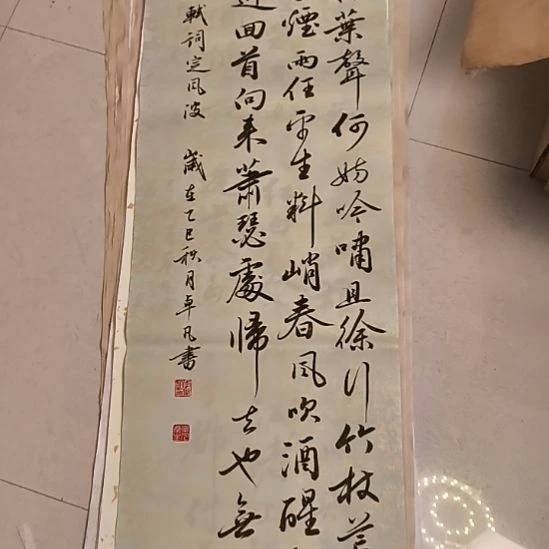 葉聲何妨吟嘯且徐行竹杖芒
煙雨任平生料峭春風吹酒醒
回首向来蕭瑟處歸去也無
軾詞定風波 歲在乙巳秋月卓凡書